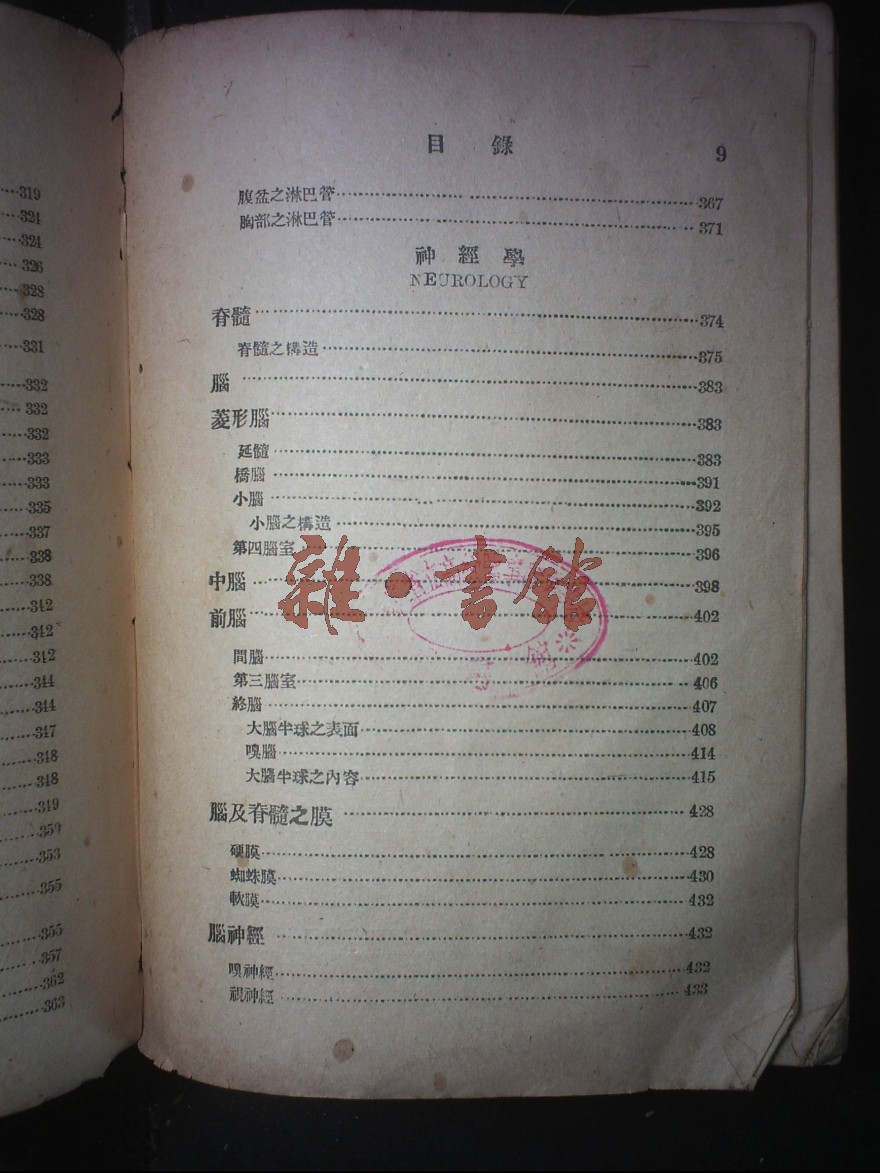 319
324
324
326
328
328
331
332
332
332
333
333
335
337
338
338
342
342
342
344
344
347
348
348
349
350
353
355
355
357
362
363
目錄 9
腹盆之淋巴管 367
胸部之淋巴管 371
神經學
NEUROLOGY
脊髓 374
脊髓之構造 375
腦 383
菱形腦 383
延髓 383
橋腦 391
小腦 392
小腦之構造 395
第四腦室 396
中腦 398
前腦 402
間腦 402
第三腦室 406
終腦 407
大腦半球之表面 408
嗅腦 414
大腦半球之內容 415
腦及脊髓之膜 428
硬膜 428
蜘蛛膜 430
軟膜 432
腦神經 432
嗅神經 432
視神經 433
雜·書館